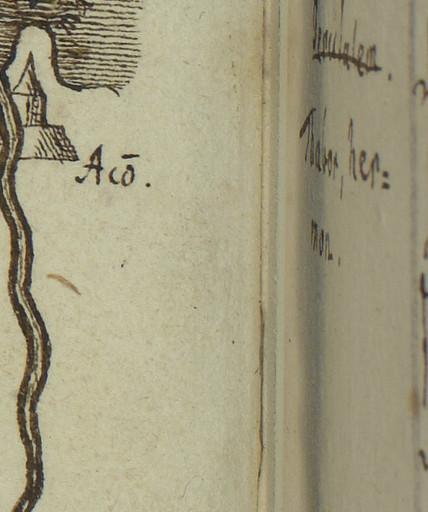 Acō.
Thabor, her=
mon.